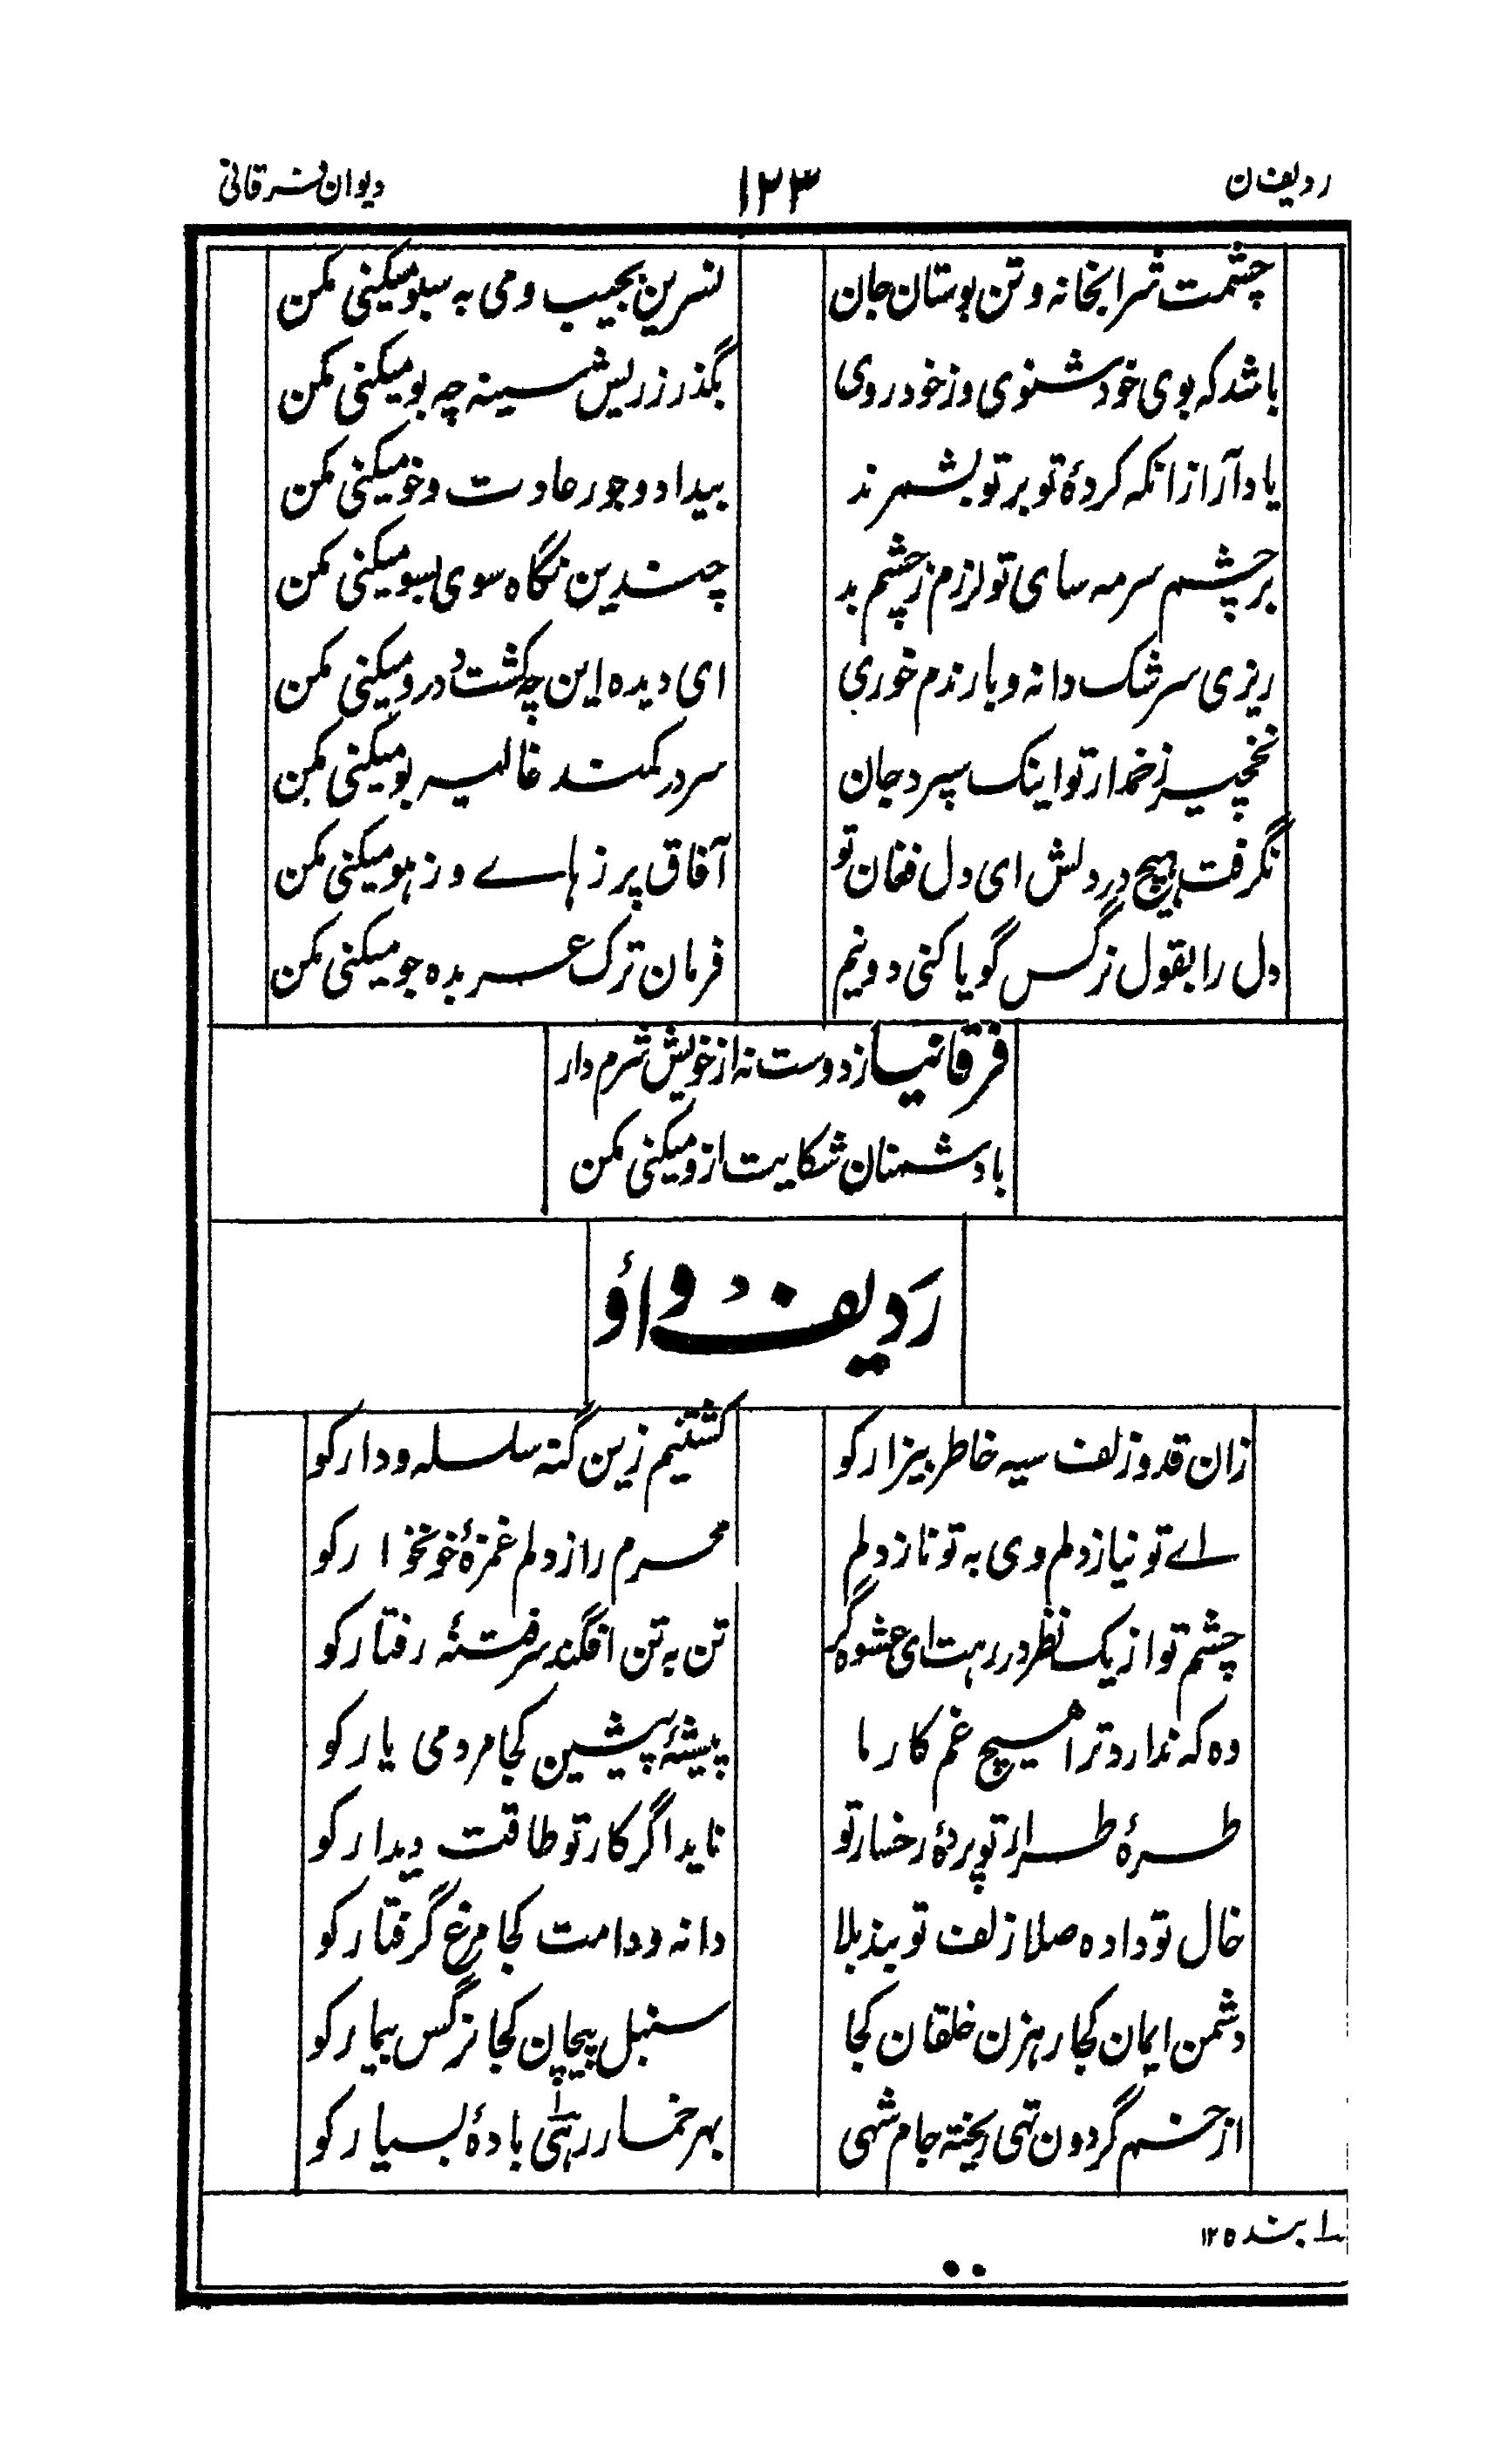 ردیف ن
۱۲۳
دیوان فرقانی
چشمت شرابخانه و تن بوستان جان
نسرین بجیب و می به سبو میکنی مکن
باشد که بوی خود شنوی وز خود روی
بگذر ز ریش سینه چه بو میکنی مکن
یاد آر ازانکه کردهٔ تو بر تو بشمرند
بیداد و جور عادت و خو میکنی مکن
بر چشم سرمه سای تو لرزم ز چشم بد
چندین نگاه سوی بسو میکنی مکن
ریزی سرشک دانه و بار ندم خوری
ای دیده این چه کشت و درو میکنی مکن
نخچیر زخمدار تو اینک سپرد جان
سر در کمند غالیه بو میکنی مکن
نگرفت هیچ در دلش ای دل فغان تو
آفاق پر ز هاے و ز هو میکنی مکن
دل را بقول نرگس گویا کنی دو نیم
فرمان ترک عربده جو میکنی مکن
فرقانیا ز دوست نه از خویش شرم دار
با دشمنان شکایت ازو میکنی مکن
ردیف واؤ
زان قد و زلف سیه خاطر بیزار کو
کشتنیم زین گنه سلسله و دار کو
اے تو نیاز دلم وی به تو ناز دلم
محرم راز دلم غمزهٔ خونخوار کو
چشم تو از یک نظر در رهت ای عشوه گر
تن به تن افگند سر فتنهٔ رفتار کو
وه که ندارد ترا هیچ غم کار ما
پیشهٔ پیشین کجا مردمی یار کو
طرهٔ طرار تو پردهٔ رخسار تو
ناید اگر کار تو طاقت دیدار کو
خال تو داده صلا زلف تو بند بلا
دانه و دامت کجا مرغ گرفتار کو
دشمن ایمان کجا رهزن خلقان کجا
سنبل پیچان کجا نرگس بیمار کو
از خم گردون تهی ریخته جام شهی
بهر خمار رهی بادهٔ بسیار کو
۱ بند ۱۲۵